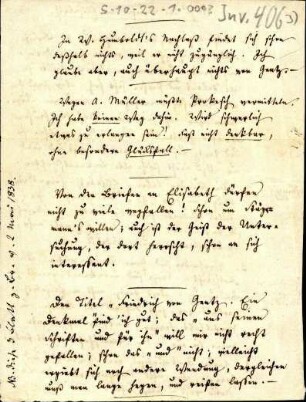 S-10-22-1.0003
Inv. 406 3)
In W. Humboldt's Nachlaß findet sich schon
deßhalb nichts, weil er nicht zugänglich. Ich
glaube aber, auch überhaupt nichts von Gentz.–
Wegen A. Müller müßte Prokesch vermitteln.
Ich habe keinen Weg dahin. Wird schwerlich
etwas zu erlangen sein! Fast nicht denkbar,
ohne besondern Glücksfall.–
Von den Briefen an Elisabeth dürfen
nicht zu viele wegfallen! Schon um
willen; auch ist der Geist der Unter-
suchung, der dort herrscht, schon an sich
interessant.
Den Titel „Friedrich von Gentz. Ein
Denkmal" find' ich gut; das „aus seinen
Schriften und für ihn" will mir nicht recht
gefallen; schon das „und" nicht; vielleicht
ergiebt sich noch andere Wendung, dergleichen
muß man lange hegen, und reifen lassen.–
2 Mai 1838.